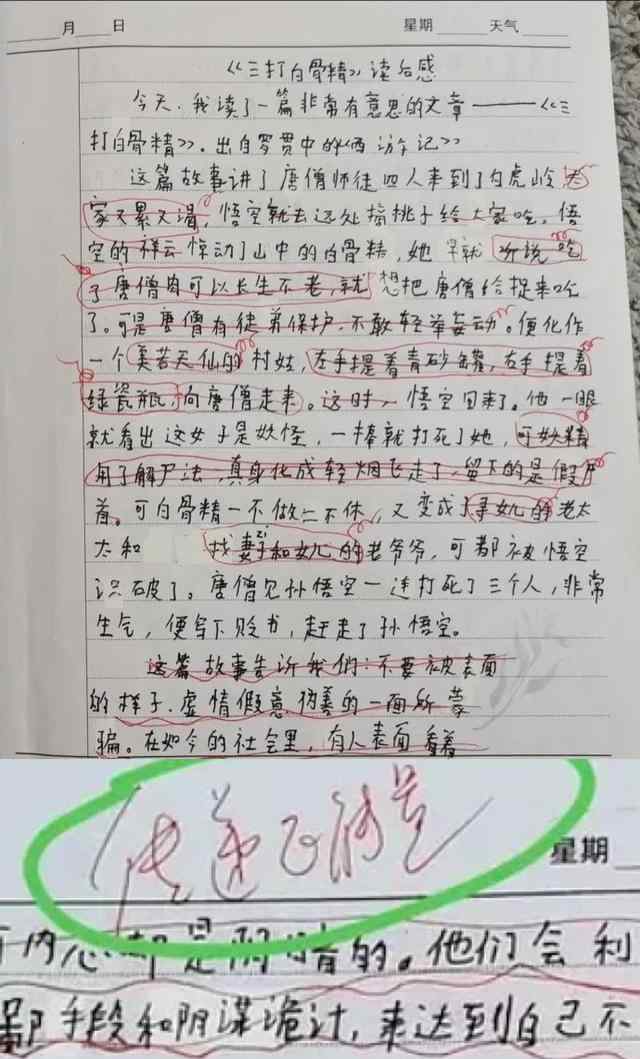 月 日 星期 天气
《三打白骨精》读后感
今天,我读了一篇非常有意思的文章——《三
打白骨精》。出自罗贯中的《西游记》
这篇故事讲了唐僧师徒四人来到了白虎岭,大
家又累又渴,悟空就去远处摘桃子给大家吃。悟
空的祥云惊动了山中的白骨精,她早就听说吃
了唐僧肉可以长生不老,就想把唐僧给捉来吃
了。可是唐僧有徒弟保护,不敢轻举妄动。便化作
一个美若天仙的村姑,左手提着青砂罐,右手提着
绿瓷瓶,向唐僧走来。这时,悟空回来了。他一眼
就看出这女子是妖怪,一棒就打死了她,可妖精
用了解尸法,真身化成轻烟飞走了,留下的是假尸
首。可白骨精一不做二不休,又变成了寻女儿的老太
太和 找妻子和女儿的老爷爷,可都被悟空
识破了。唐僧见孙悟空一连打死了三个人,非常
生气,便写下贬书,赶走了孙悟空。
这篇故事告诉我们:不要被表面
的样子,虚情假意,伪善的一面所蒙
骗。在如今的社会里,有人表面看着
传递正能量
星期
内心却是阴暗的。他们会利
鄙手段和阴谋诡计,来达到自己不